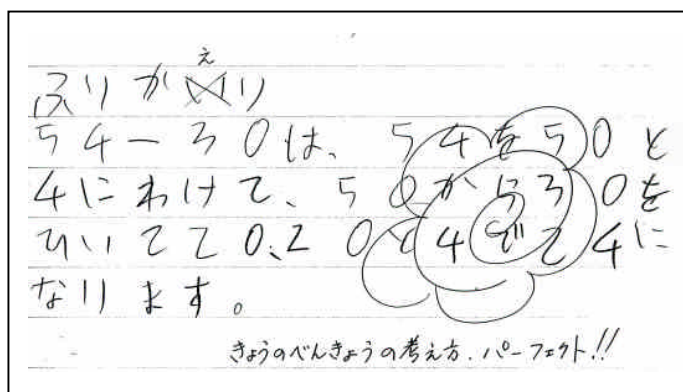 ふりかえり
54-30は、54を50と
4にわけて、50から30を
ひいて20、20と4で24に
なります。
きょうのべんきょうの考え方、パーフェクト!!